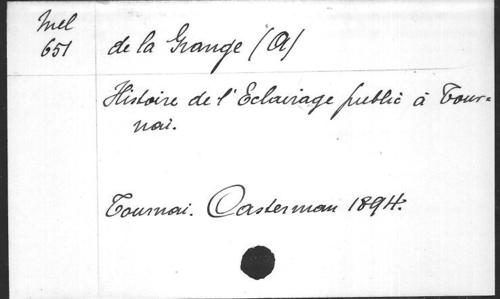 Mel
651
de la Grange (A)
Histoire de l'Eclairage public à Tour=
nai.
Tournai. Casterman 1894.